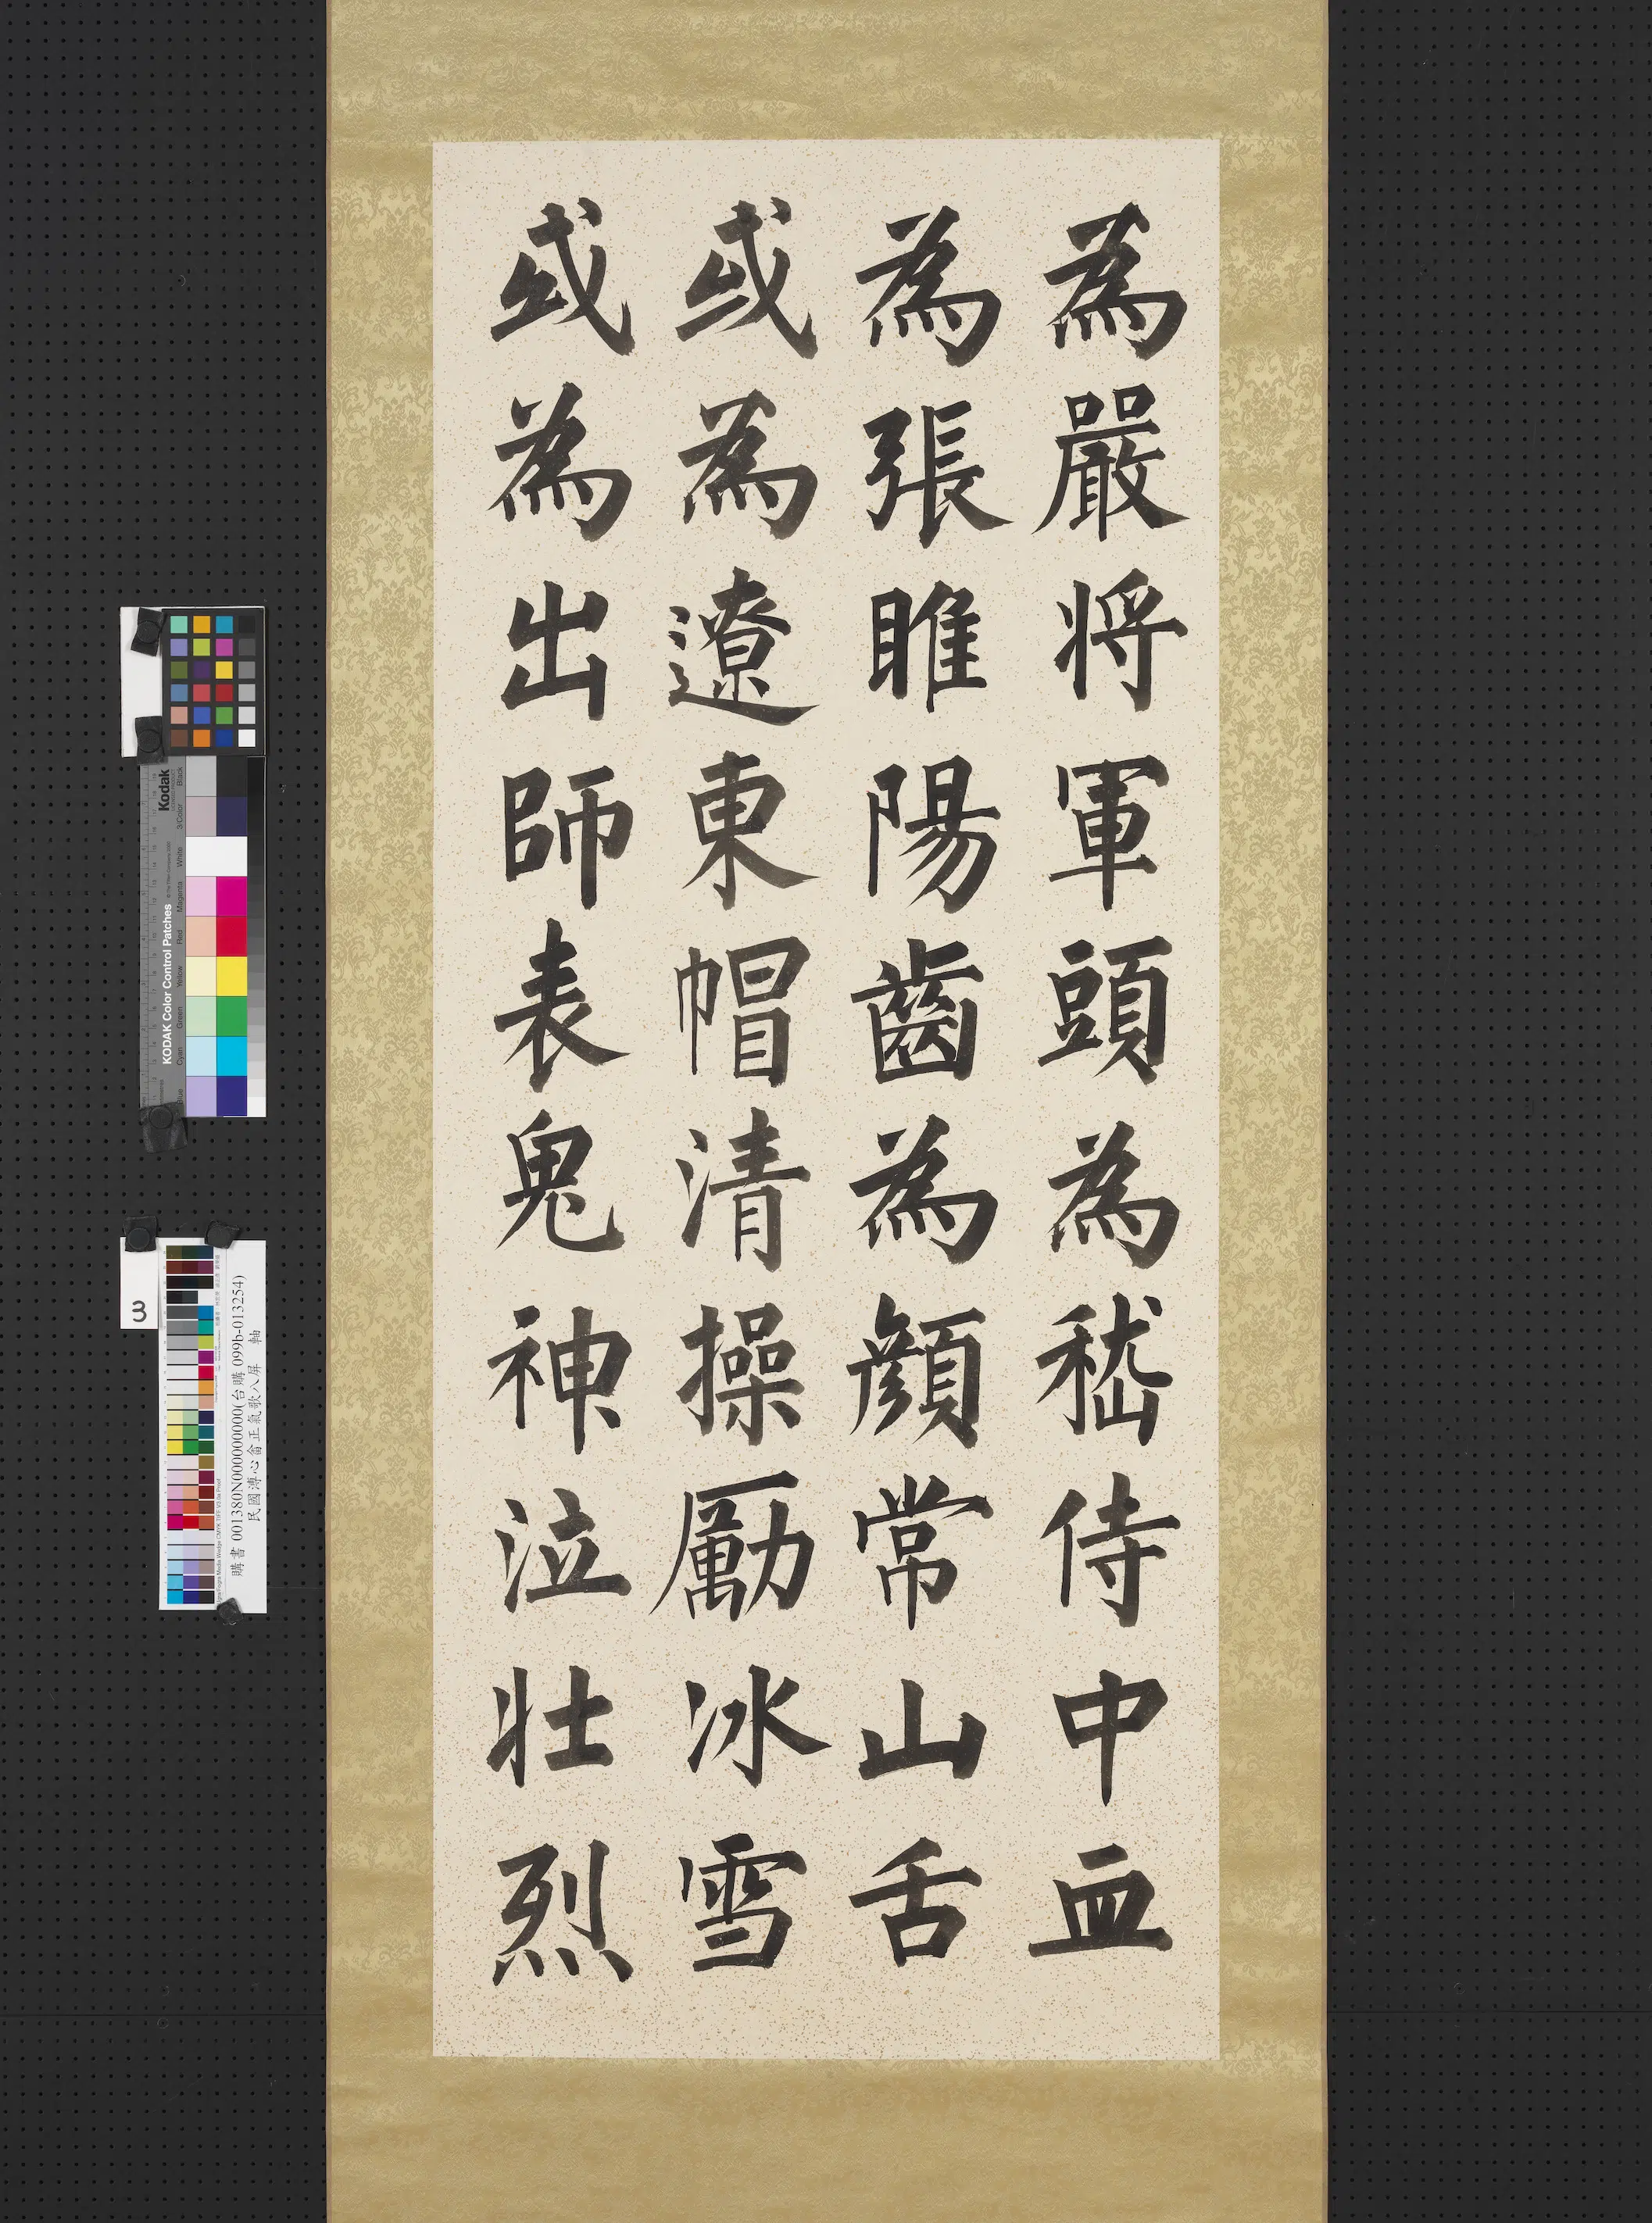 為嚴将軍頭為嵇侍中血
為張睢陽齒為顏常山舌
或為遼東帽清操勵冰雪
或為出師表鬼神泣壯烈
Kodak
KODAK Color Control Patches
Black
3/Color
White
Magenta
Red
Yellow
Green
Cyan
Blue
3
購書 001380N000000000(台購 099b-013254)
民國溥心畬正氣歌八屏 軸